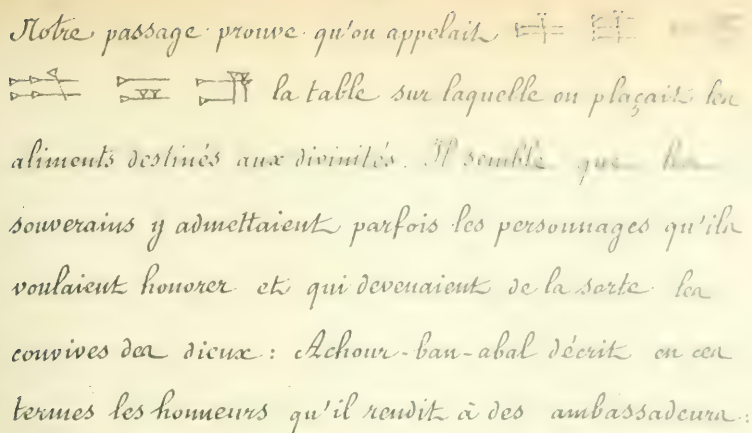 Notre passage prouve qu'on appelait
la table sur laquelle on plaçait les
aliments destinés aux divinités. Il semble que les
souverains y admettaient parfois les personnages qu'ils
voulaient honorer et qui devenaient de la sorte les
convives des dieux : Achour-ban-abal décrit en ces
termes les honneurs qu'il rendit à des ambassadeurs :